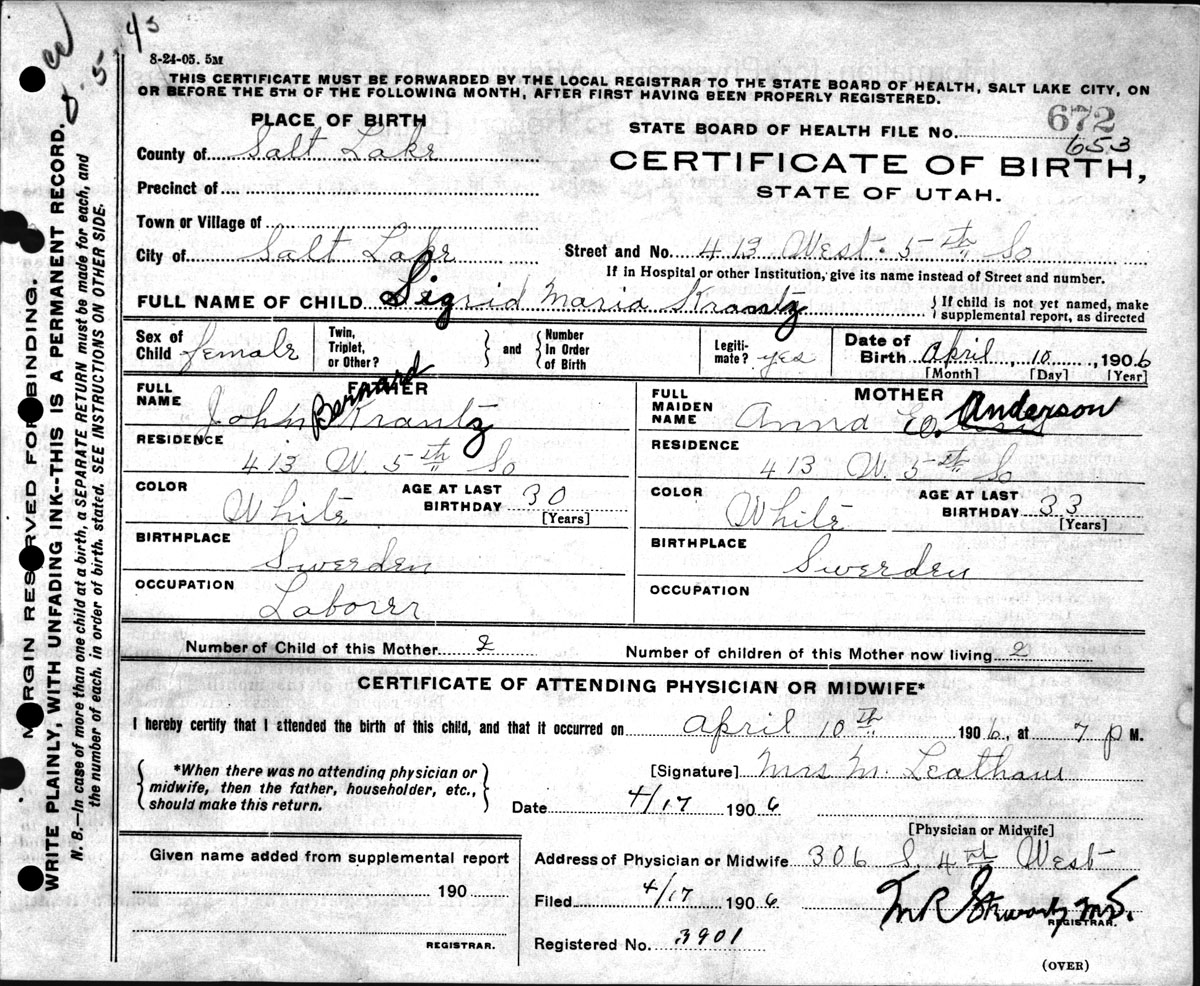 8-24-05. 5M
THIS CERTIFICATE MUST BE FORWARDED BY THE LOCAL REGISTRAR TO THE STATE BOARD OF HEALTH, SALT LAKE CITY, ON
OR BEFORE THE 5TH OF THE FOLLOWING MONTH, AFTER FIRST HAVING BEEN PROPERLY REGISTERED.
PLACE OF BIRTH
County of Salt Lake
Precinct of
Town or Village of
City of Salt Lake
STATE BOARD OF HEALTH FILE No. 672
653
CERTIFICATE OF BIRTH,
STATE OF UTAH.
Street and No. 413 West. 5th So
If in Hospital or other Institution, give its name instead of Street and number.
FULL NAME OF CHILD Sigrid Maria Krantz
If child is not yet named, make
supplemental report, as directed
Sex of
Child female
Twin,
Triplet,
or Other?
and
Number
In Order
of Birth
Legiti-
mate? yes
Date of
Birth April, 10, 1906
[Month] [Day] [Year]
FULL
NAME
FATHER
John Bernard Krantz
RESIDENCE
413 W. 5th So
COLOR
White
AGE AT LAST
BIRTHDAY 30
[Years]
BIRTHPLACE
Sweden
OCCUPATION
Laborer
FULL
MAIDEN
NAME
MOTHER
Anna E. Anderson
RESIDENCE
413 W. 5th So
COLOR
White
AGE AT LAST
BIRTHDAY 33
[Years]
BIRTHPLACE
Sweden
OCCUPATION
Number of Child of this Mother 2
Number of children of this Mother now living 2
CERTIFICATE OF ATTENDING PHYSICIAN OR MIDWIFE*
I hereby certify that I attended the birth of this child, and that it occurred on April 10th 1906, at 7 p M.
*When there was no attending physician or
midwife, then the father, householder, etc.,
should make this return.
[Signature] Mrs M.
Date 4/17 1906
[Physician or Midwife]
Given name added from supplemental report
190
REGISTRAR.
Address of Physician or Midwife 306 S. 4th West
Filed 4/17 1906
M R Stewart M.D.
REGISTRAR.
Registered No. 3901
(OVER)
MARGIN RESERVED FOR BINDING.
WRITE PLAINLY, WITH UNFADING INK--THIS IS A PERMANENT RECORD.
N. B.--In case of more than one child at a birth, a SEPARATE RETURN must be made for each, and
the number of each, in order of birth, stated. SEE INSTRUCTIONS ON OTHER SIDE.